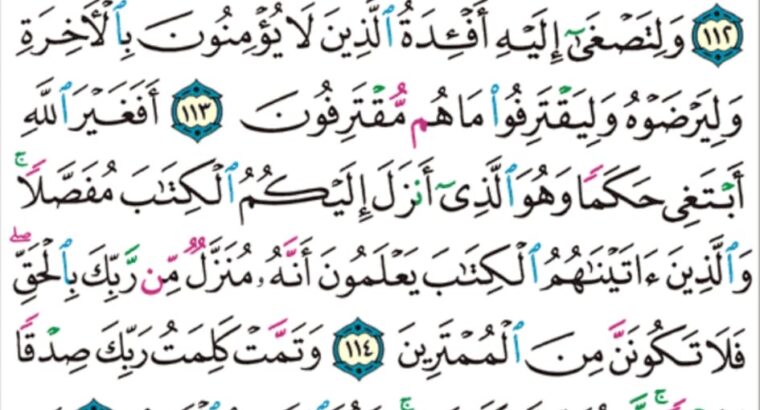 ١١٢ وَلِتَصْغَىٰٓ إِلَيْهِ أَفْـِٔدَةُ ٱلَّذِينَ لَا يُؤْمِنُونَ بِٱلْأَخِرَةِ
وَلِيَرْضَوْهُ وَلِيَقْتَرِفُوا۟ مَا هُم مُّقْتَرِفُونَ ١١٣ أَفَغَيْرَ ٱللَّهِ
أَبْتَغِى حَكَمًا وَهُوَ ٱلَّذِىٓ أَنزَلَ إِلَيْكُمُ ٱلْكِتَٰبَ مُفَصَّلًا ۚ
وَٱلَّذِينَ ءَاتَيْنَٰهُمُ ٱلْكِتَٰبَ يَعْلَمُونَ أَنَّهُۥ مُنَزَّلٌ مِّن رَّبِّكَ بِٱلْحَقِّ ۖ
فَلَا تَكُونَنَّ مِنَ ٱلْمُمْتَرِينَ ١١٤ وَتَمَّتْ كَلِمَتُ رَبِّكَ صِدْقًا